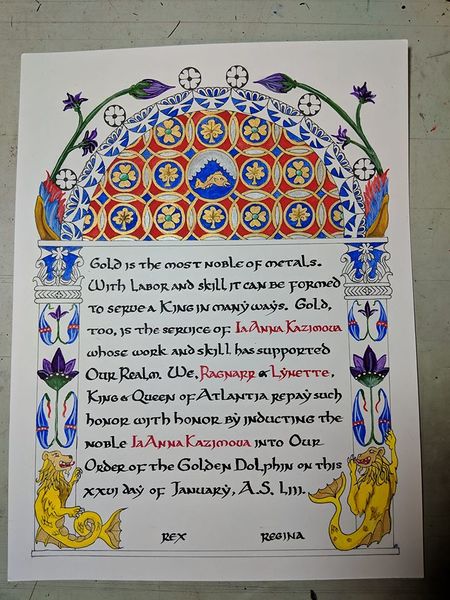 Gold is the most noble of metals.
With labor and skill it can be formed
to serve a King in many ways. Gold,
too, is the service of IaAnna Kazimova
whose work and skill has supported
Our Realm. We, Ragnarr & Lynette,
King & Queen of Atlantia repay such
honor with honor by inducting the
noble IaAnna Kazimova into Our
Order of the Golden Dolphin on this
xxvi day of January, A.S. LIII.
REX REGINA